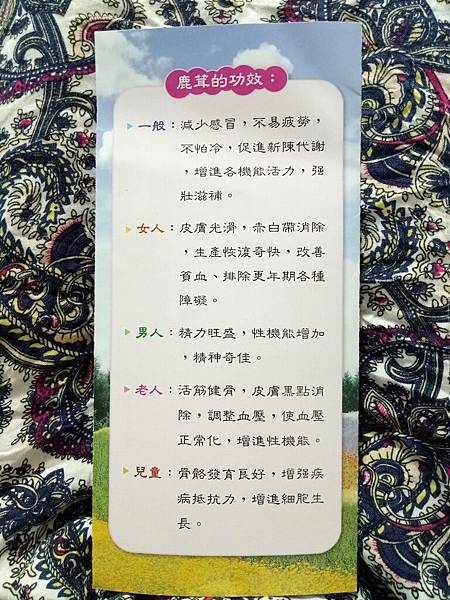 鹿茸的功效：
一般：減少感冒，不易疲勞，
不怕冷，促進新陳代謝
，增進各機能活力，强
壯滋補。
女人：皮膚光滑，赤白帶消除
，生產恢復奇快，改善
貧血、排除更年期各種
障礙。
男人：精力旺盛，性機能增加
，精神奇佳。
老人：活筋健骨，皮膚黑點消
除，調整血壓，使血壓
正常化，增進性機能。
兒童：骨骼發育良好，增强疾
病抵抗力，增進細胞生
長。